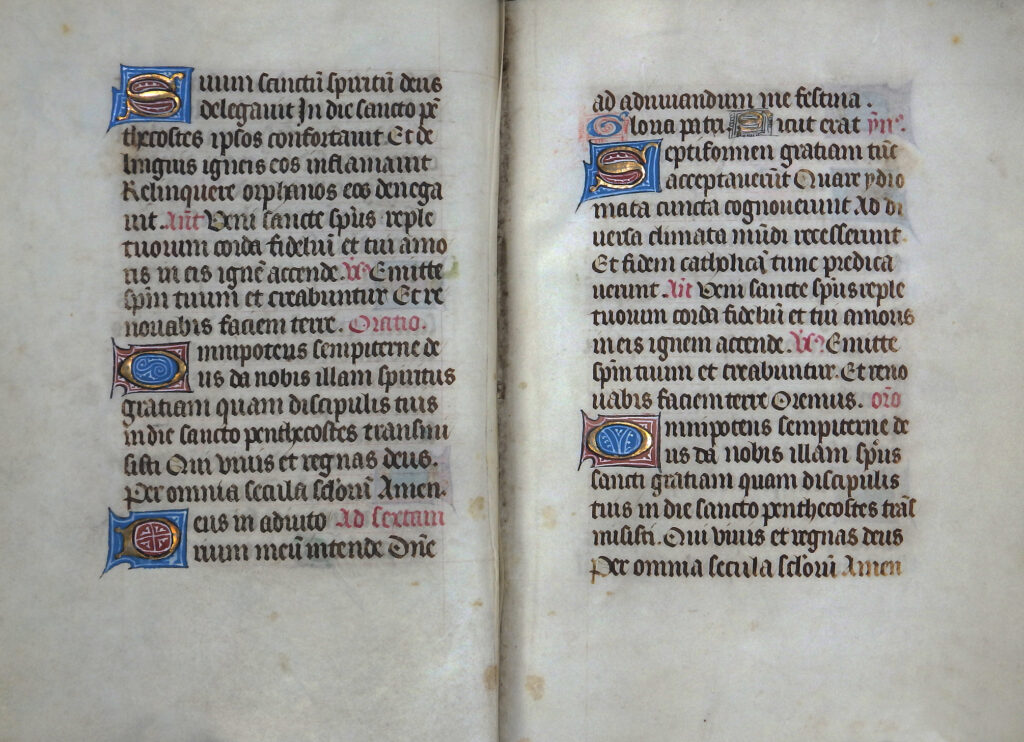 Suum sanctū spiritū deus
delegavit In die sancto pē
thecostes ipsos confortavit Et de
linguis igneis eos inflamavit
Relinquere orphanos eos denega
vit. Añt Veni sancte spūs reple
tuorum corda fidelium et tui amo
ris in eis ignē accende. V̄s Emitte
spm̄ tuum et creabuntur Et re
novabis faciem terre. Oratio.
Omnipotens sempiterne de
us da nobis illam spiritus
gratiam quam discipulis tuis
in die sancto penthecostes transmi
sisti Qui vivis et regnas deus.
Per omnia secula sclōrū Amen.
Deus in adiuto Ad sextam
rium meū intende Dñe
ad adiuvandum me festina.
Gloria patri. Sicut erat ym̄s.
Septiformen gratiam tūc
acceptaverūt Quare ydio
mata cuncta cognoverunt Ad di
versa climata mūdi recesserunt
Et fidem catholicā tunc predica
verunt. Añt Veni sancte spūs reple
tuorum corda fideliū et tui amoris
in eis ignem accende. V̄s Emitte
spm̄ tuum et creabuntur. Et reno
vabis faciem terre Oremus. orō
Omnipotens sempiterne de
us da nobis illam spūs
sancti gratiam quam discipulis
tuis in die sancto penthecostes trās
misisti. Qui vivis et regnas deus
Per omnia secula sclōrū Amen